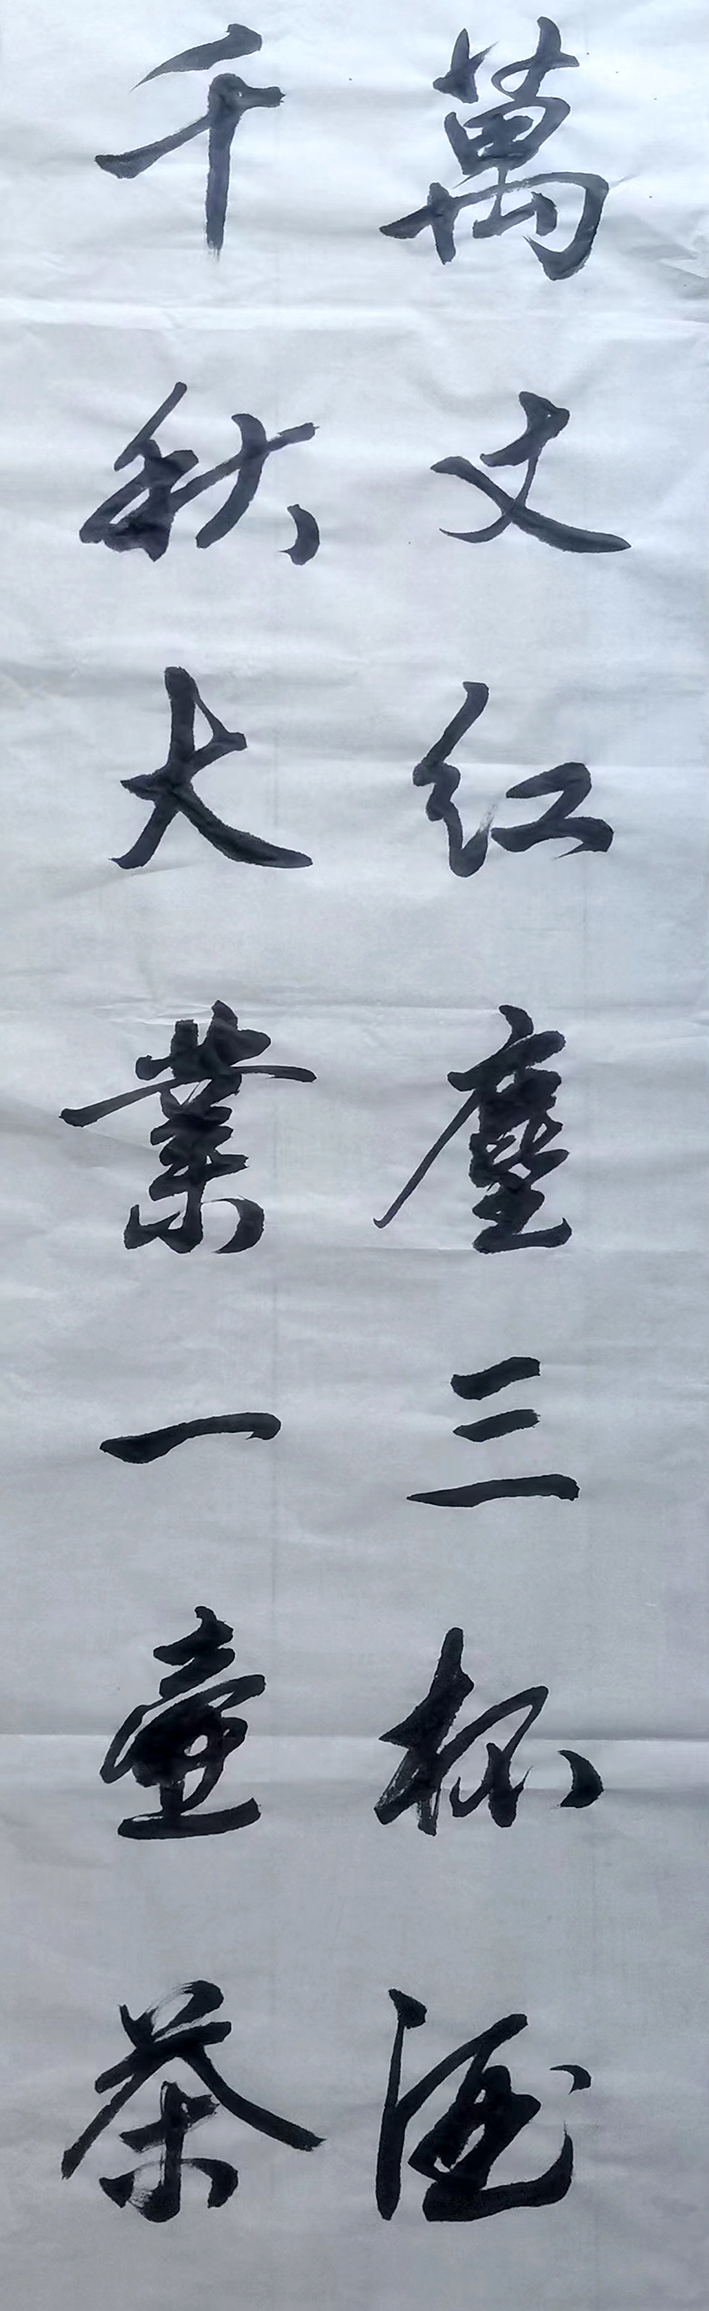 萬丈红塵三杯酒
千秋大業一壷茶